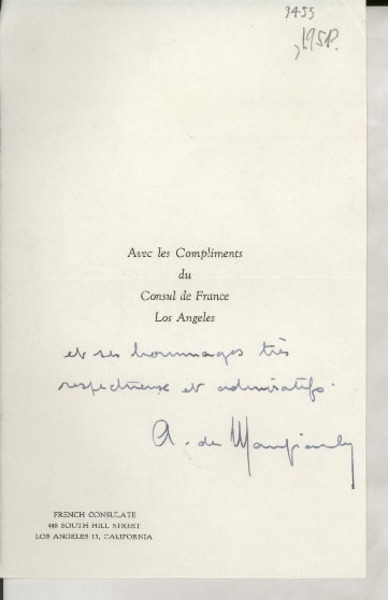 3455
1958.
Avec les Compliments
du
Consul de France
Los Angeles
et ses hommages très
respectueux et admiratifs.
A. de
FRENCH CONSULATE
SOUTH HILL STREET
LOS ANGELES 13, CALIFORNIA